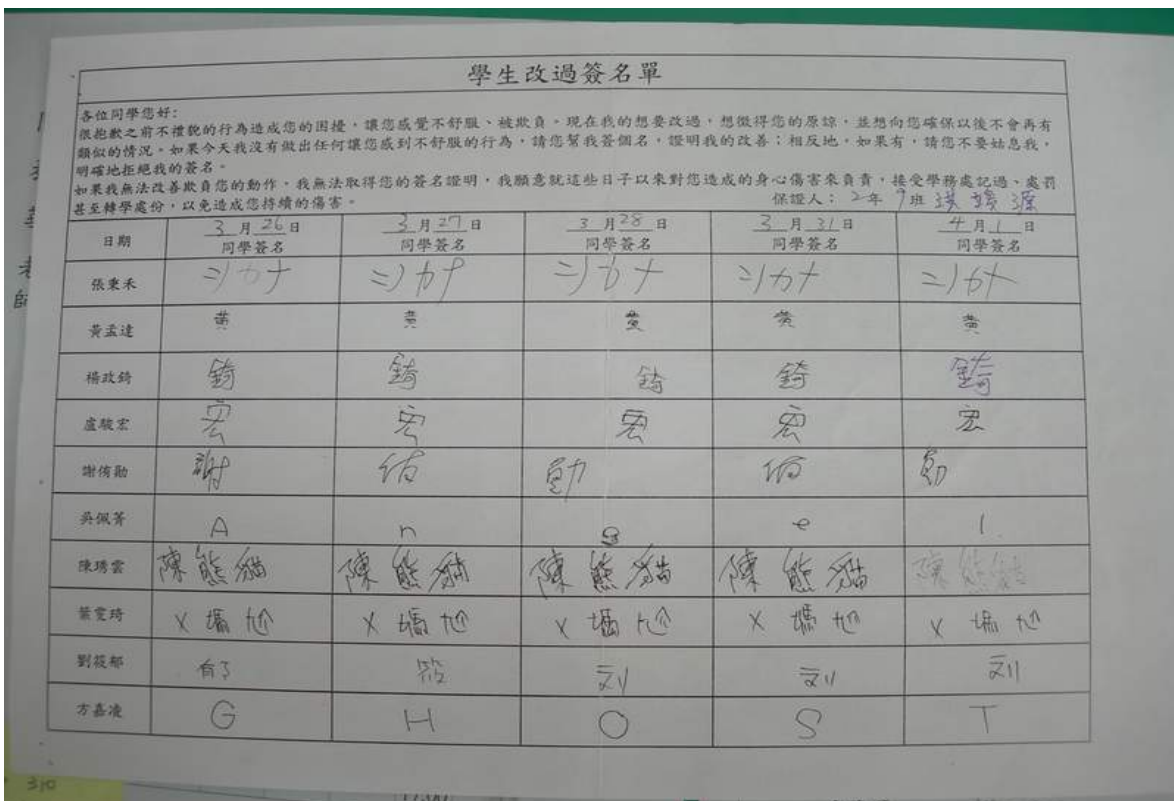 學生改過簽名單
各位同學您好:
很抱歉之前不禮貌的行為造成您的困擾,讓您感覺不舒服、被欺負。現在我的想要改過,想徵得您的原諒,並想向您確保以後不會再有
類似的情況。如果今天我沒有做出任何讓您感到不舒服的行為,請您幫我簽個名,證明我的改善;相反地,如果有,請您不要姑息我,
明確地拒絕我的簽名。
如果我無法改善欺負您的動作,我無法取得您的簽名證明,我願意就這些日子以來對您造成的身心傷害來負責,接受學務處記過、處罰
甚至轉學處份,以免造成您持續的傷害。
保證人: 2年 9班
日期 3月26日 3月27日 3月28日 3月31日 4月1日
同學簽名 同學簽名 同學簽名 同學簽名 同學簽名
張秉禾
黃孟達 黃 黃 黃 黃 黃
楊政錡 錡 錡 錡 錡 錡
盧駿宏 宏 宏 宏 宏 宏
謝侑勛 謝 侑 勛 侑 勛
吳佩菁 A n g e l.
陳琇雲 陳熊貓 陳熊貓 陳熊貓 陳熊貓 陳熊貓
葉雯琦 X 尷尬 X 尷尬 X 尷尬 X 尷尬 X 尷尬
劉筱郁 有了 筱 刘 刘 刘
方嘉凌 G H O S T
師
310